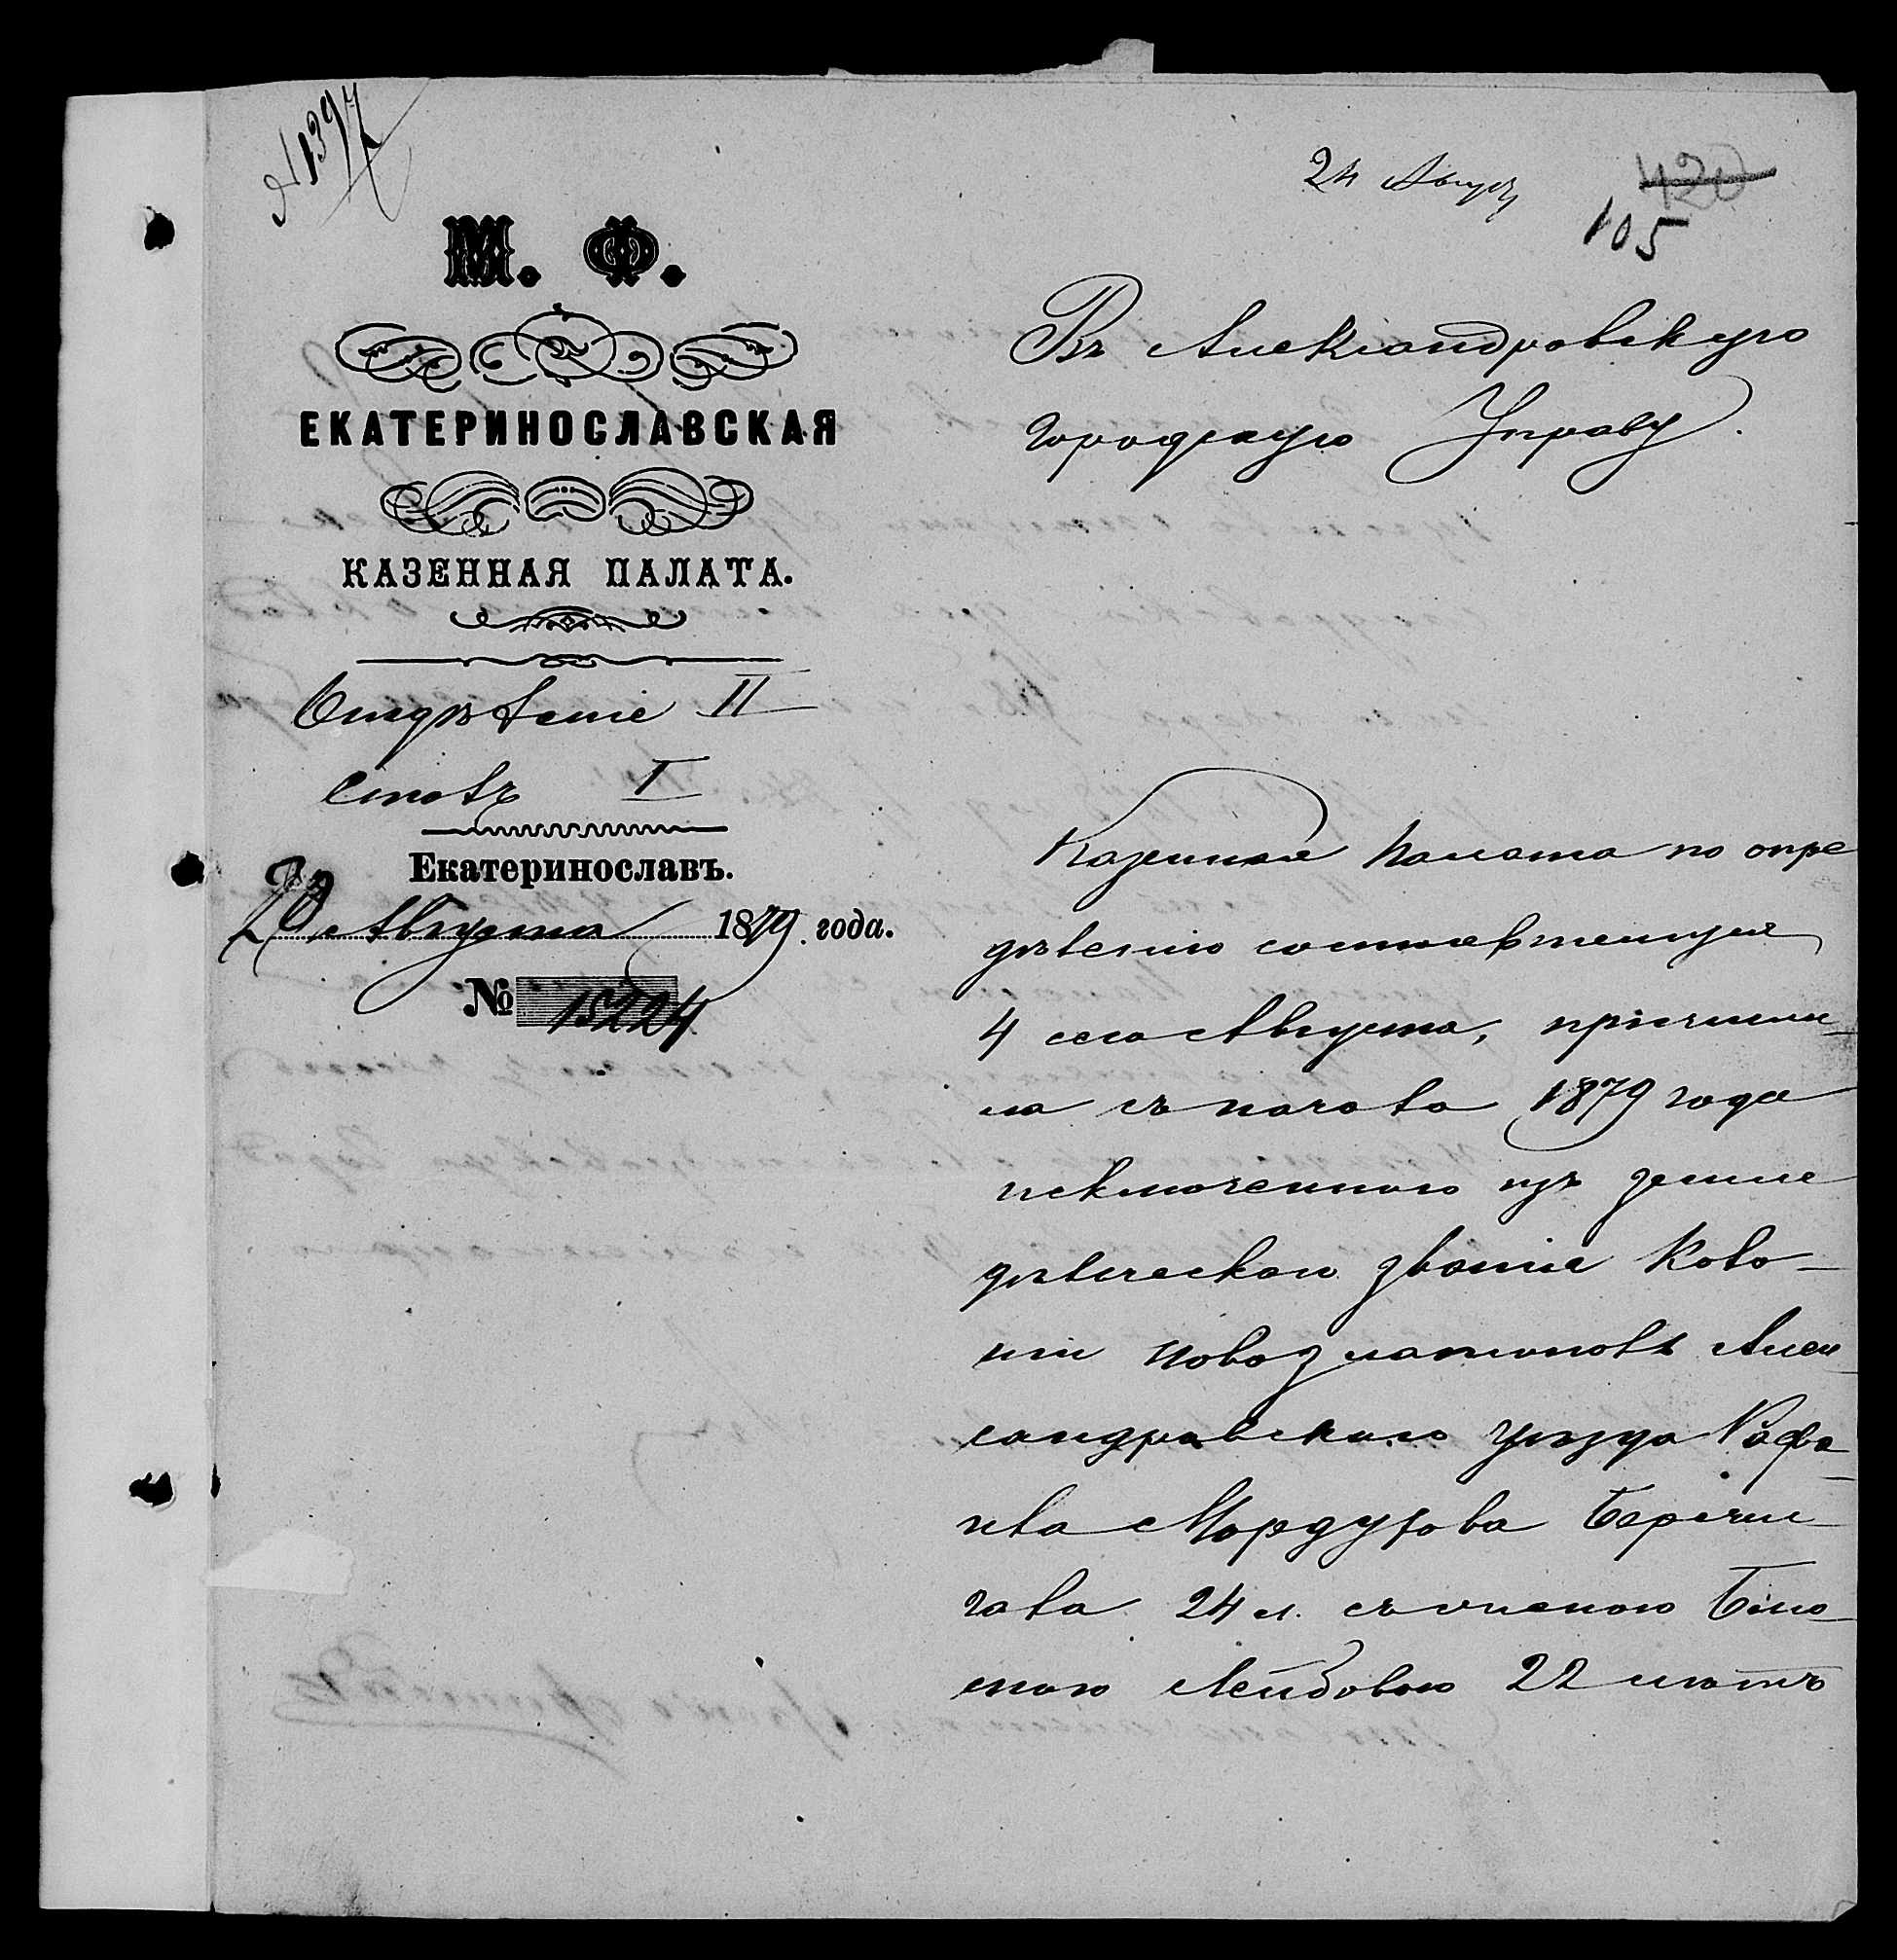 № 1397
24 Авгус
420
105
М. Ф.
ЕКАТЕРИНОСЛАВСКАЯ
КАЗЕННАЯ ПАЛАТА.
Отдѣленіе II
Столъ I
Екатеринославъ.
20 Августа 1879 года.
№ 15224
Въ Александровскую
городскую Управу.
Казенная Палата по опре
дѣленію состоявшемуся
4 сего Августа, причисли
ла съ начала 1879 года
исключеннаго изъ земле
дѣльческаго званія Коло-
ніи Новозлатополь Алек
сандровскаго уѣзда Рафа-
ила Мордухова Беречи-
гова 24 л. съ женою
Лейбовою 22 лѣтъ